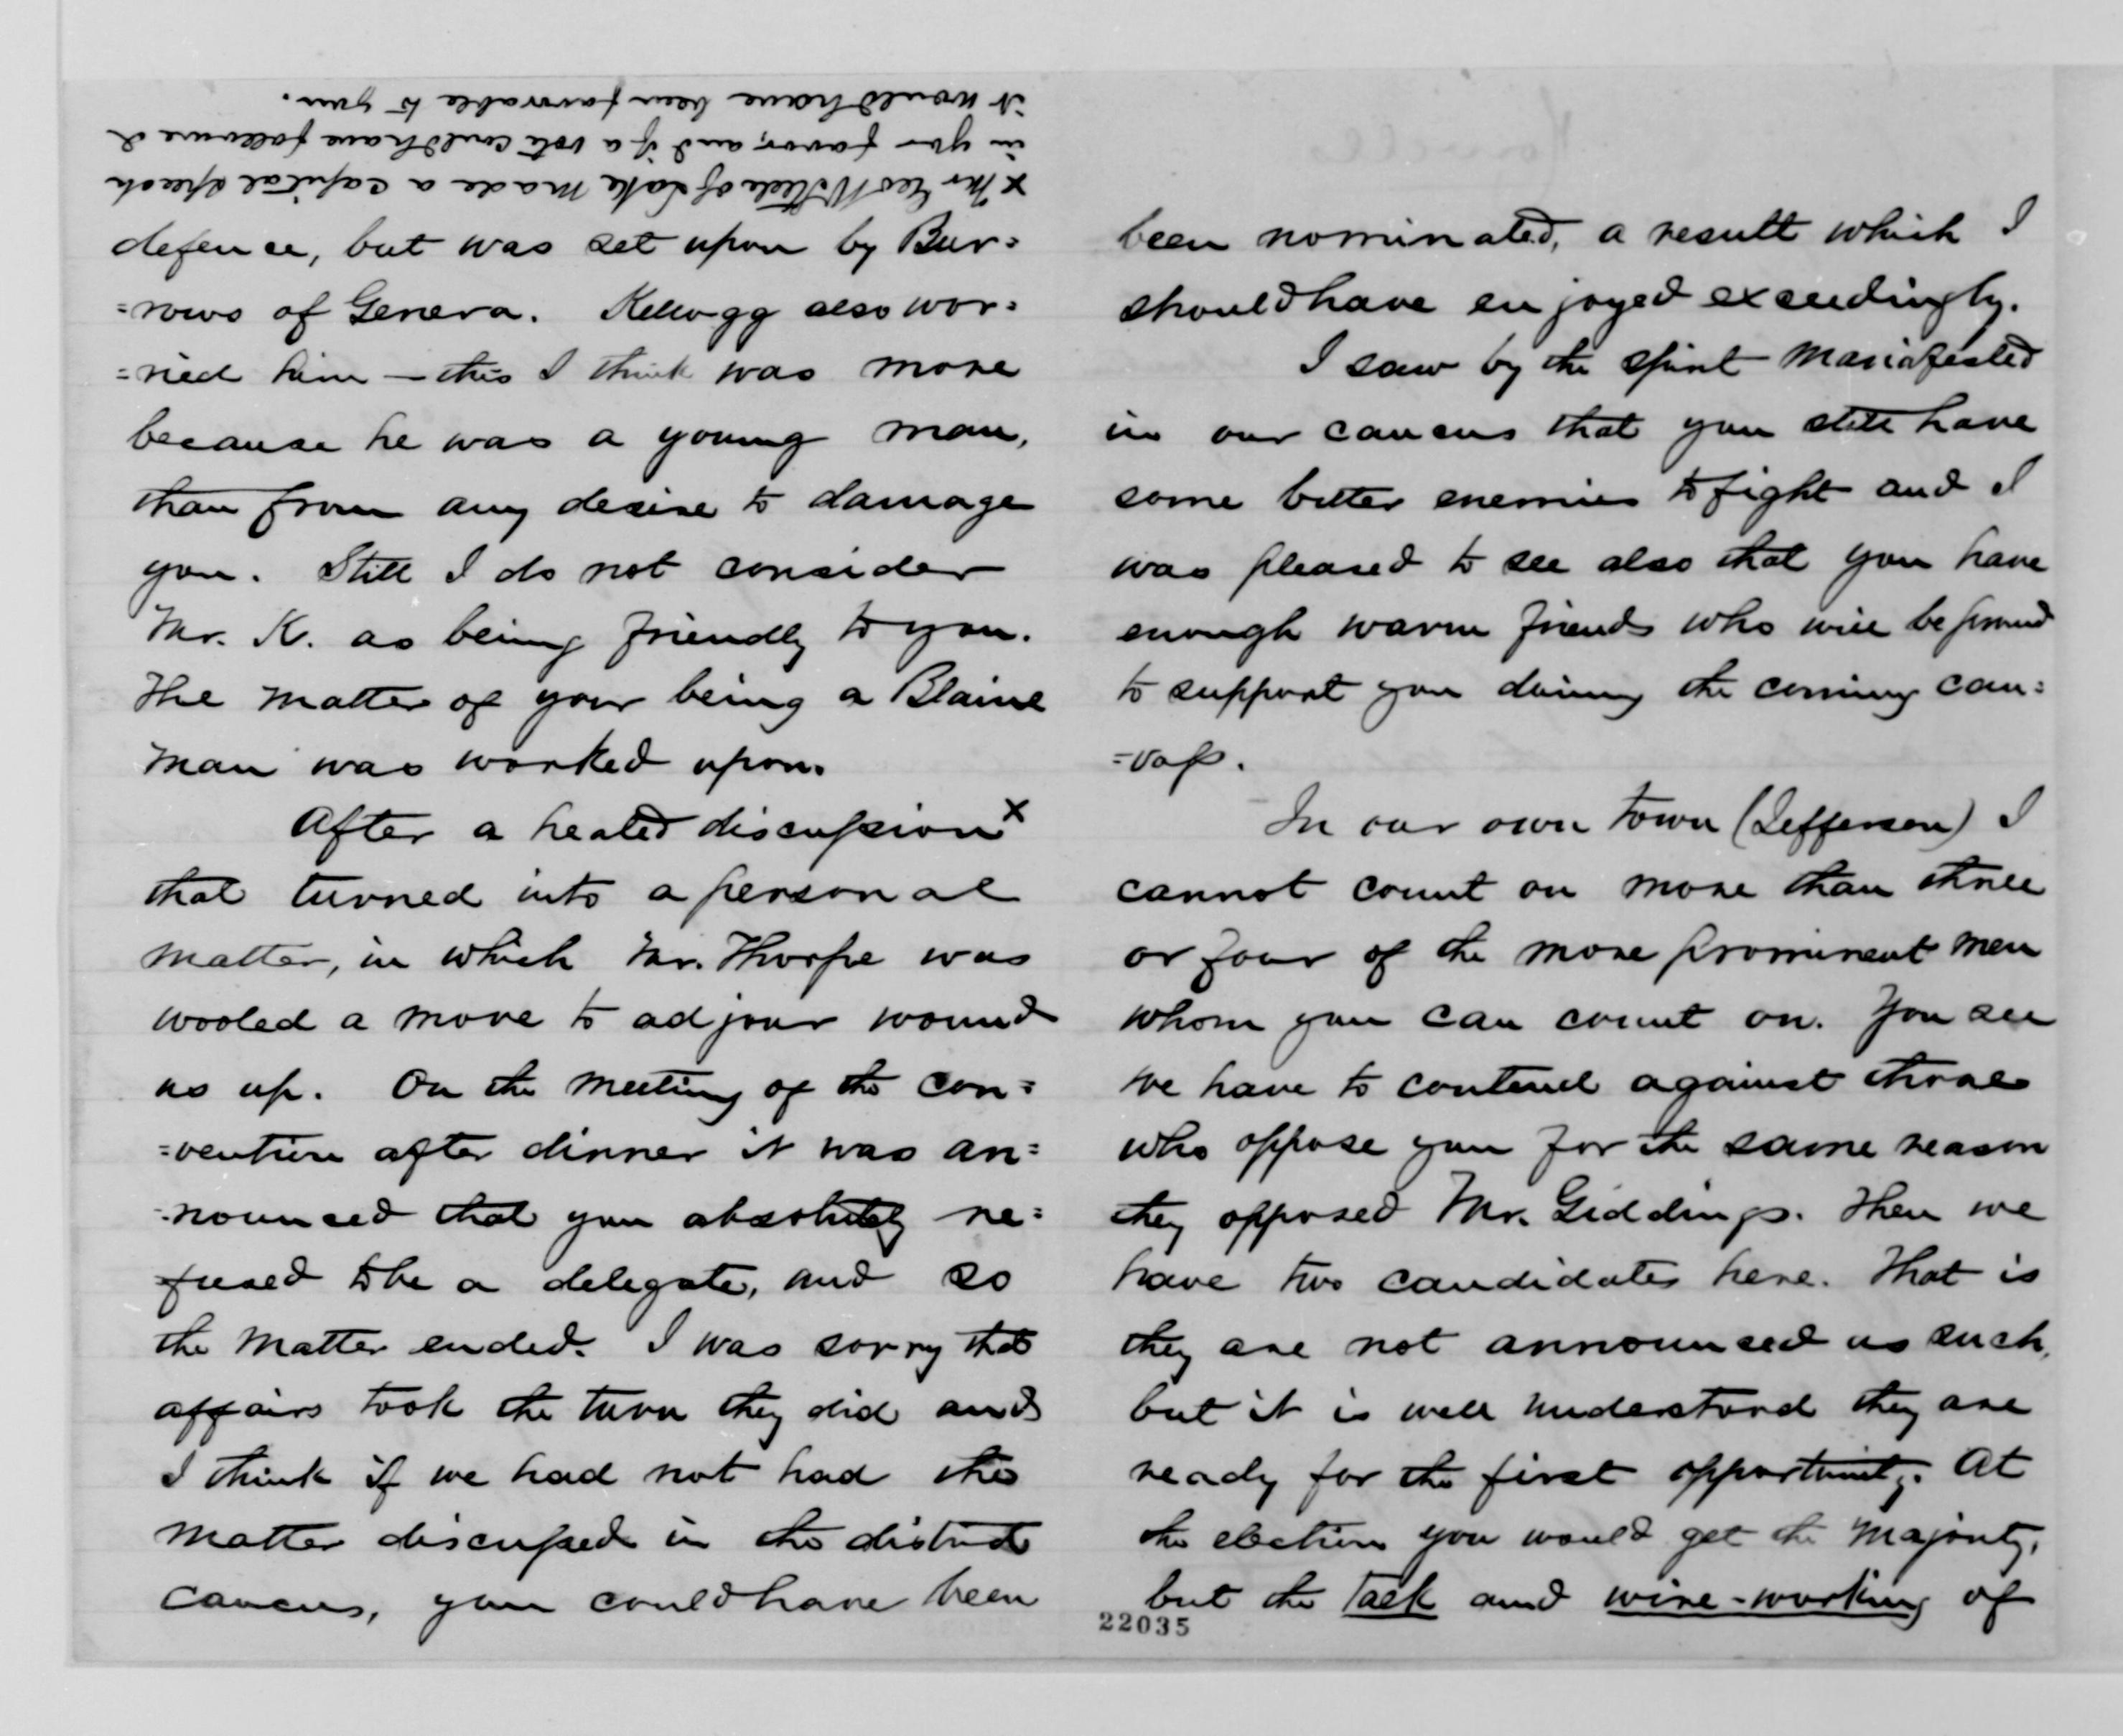 x Mr Geo W Steele of Lake made a capital speech
in your favor, and if a vote could have followed
it would have been favorable to you.
defence, but was set upon by Bur=
=rows of Geneva. Kellogg also wor=
=ried him — this I think was more
because he was a young man,
than from any desire to damage
you. Still I do not consider
Mr. K. as being friendly to you.
The matter of your being a Blaine
man was worked upon.
After a heated discussion x
that turned into a personal
matter, in which Mr. Thorpe was
wooled a move to adjour wound
us up. On the meeting of the con=
=vention after dinner it was an=
=nounced that you absolutely re=
fused to be a delegate, and so
the matter ended. I was sorry that
affairs took the turn they did and
I think if we had not had the
matter discussed in the district
caucus, you could have been
been nominated, a result which I
should have enjoyed exceedingly.
I saw by the spirit manifested
in our caucus that you still have
some bitter enemies to fight and I
was pleased to see also that you have
enough warm friends who will be found
to support you during the coming can=
=vass.
In our own town (Jefferson) I
cannot count on more than three
or four of the more prominent men
whom you can count on. You see
we have to contend against those
who oppose you for the same reason
they opposed Mr. Giddings. Then we
have two candidates here. That is
they are not announced as such,
but it is well understood they are
ready for the first opportunity. At
the election you would get the majority,
but the talk and wire-working of
22035